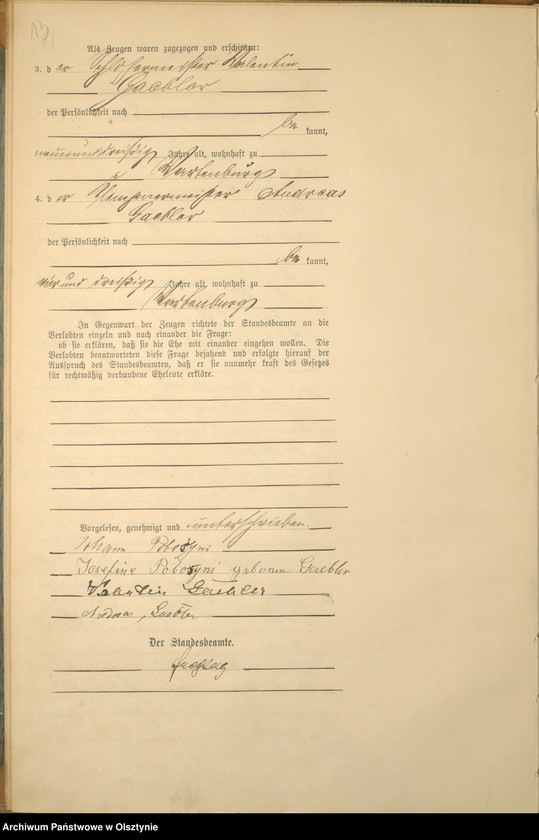 Als Zeugen waren zugezogen und erschienen:
3. d er Schlossermeister Valentin
Gaebler
der Persönlichkeit nach
be kannt,
neunundreißig Jahre alt, wohnhaft zu
Wartenburg
4. d er Klempnermeister Andreas
Gaebler
der Persönlichkeit nach
be kannt,
vier und dreißig Jahre alt, wohnhaft zu
Wartenburg
In Gegenwart der Zeugen richtete der Standesbeamte an die
Verlobten einzeln und nach einander die Frage:
ob sie erklären, daß sie die Ehe mit einander eingehen wollen. Die
Verlobten beantworteten diese Frage bejahend und erfolgte hierauf der
Ausspruch des Standesbeamten, daß er sie nunmehr kraft des Gesetzes
für rechtmäßig verbundene Eheleute erkläre.
Vorgelesen, genehmigt und unterschrieben.
Johann
Josefine geborene Gaebler
Valentin Gaebler
Andreas Gaebler
Der Standesbeamte.
Archiwum Państwowe w Olsztynie